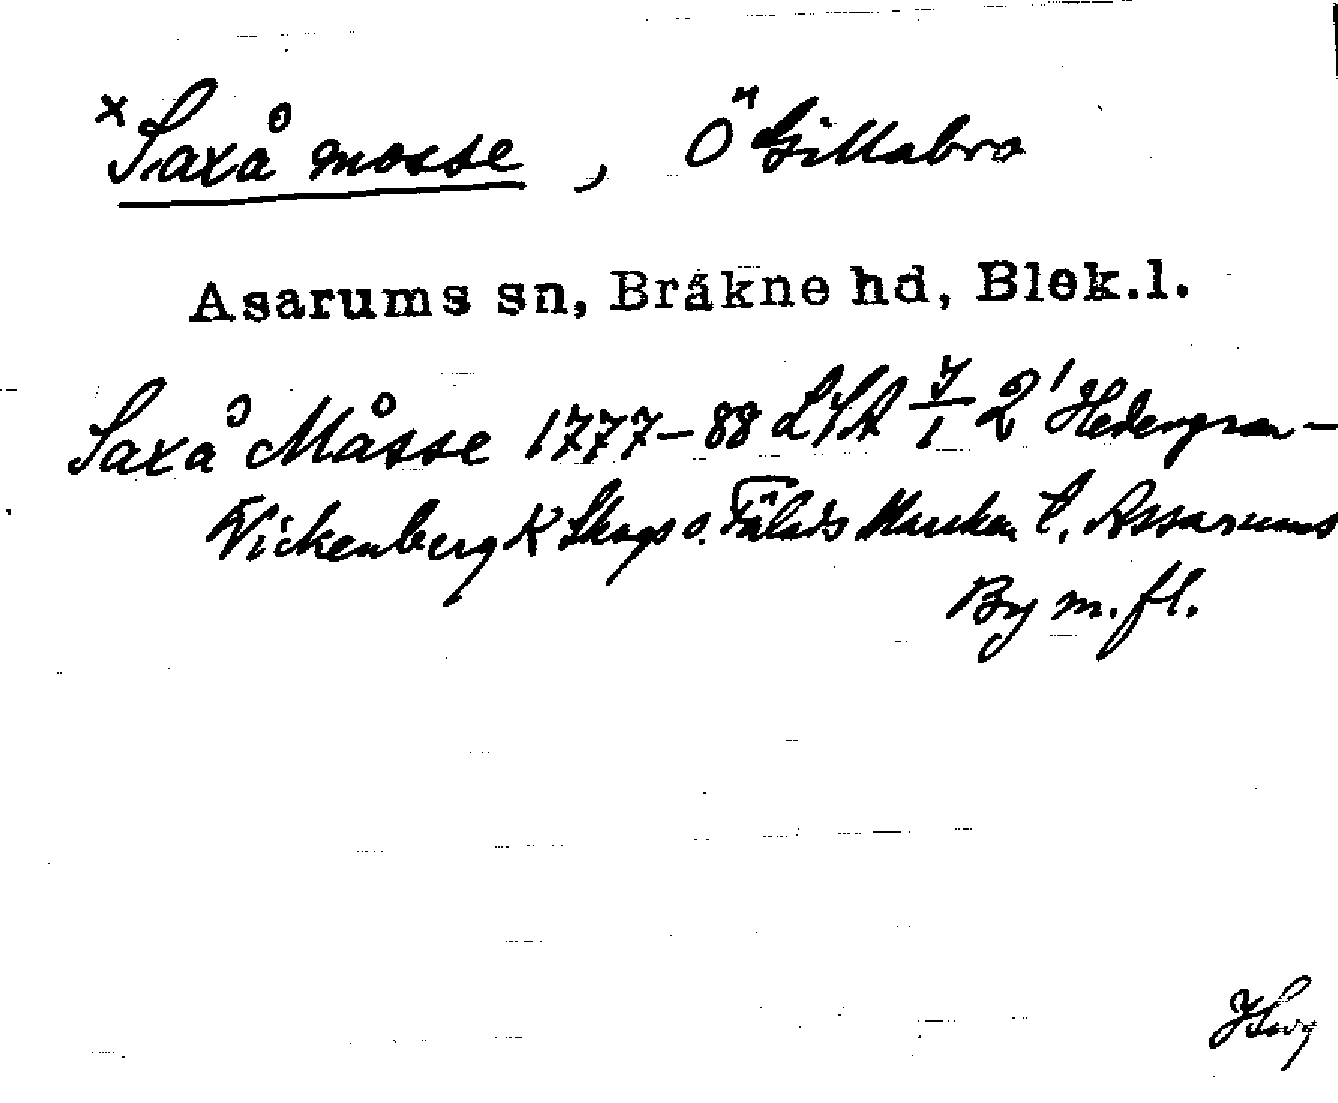 x Saxå mosse, Ö Gillabro
Asarums sn, Bräkne hd, Blek.l.
Saxå Måsse 1777–88 LSA 7/1 2' Hedergran–
Wickenberg K Skogs o. Fälads Marken t. Assarums
By m.fl.